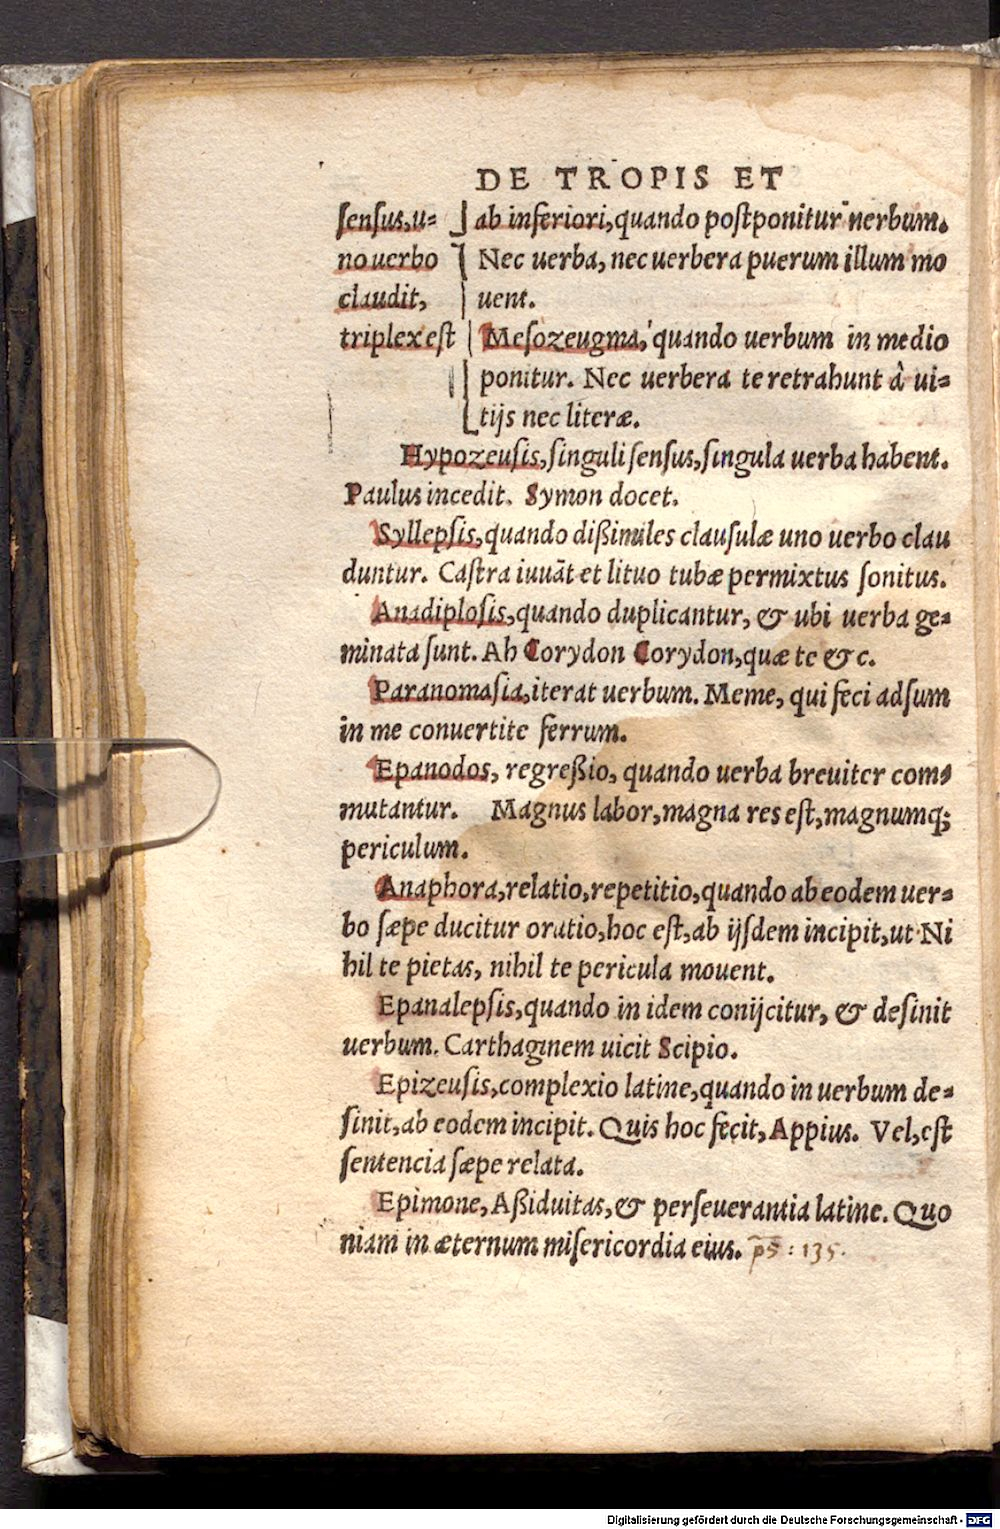 DE TROPIS ET
sensus,u= ab inferiori,quando postponitur uerbum.
no uerbo Nec uerba, nec uerbera puerum illum mo
claudit, uent.
triplex est Mesozeugma, quando uerbum in medio
ponitur. Nec uerbera te retrahunt à ui=
tijs nec literæ.
Hypozeusis,singuli sensus,singula uerba habent.
Paulus incedit. Symon docet.
Syllepsis,quando dißimiles clausulæ uno uerbo clau
duntur. Castra iuuāt et lituo tubæ permixtus sonitus.
Anadiplosis,quando duplicantur, & ubi uerba ge=
minata sunt. Ah Corydon Corydon,quæ te &c.
Paranomasia,iterat uerbum. Meme, qui feci adsum
in me conuertite ferrum.
Epanodos, regreßio, quando uerba breuiter com=
mutantur. Magnus labor,magna res est,magnumq;
periculum.
Anaphora,relatio,repetitio,quando ab eodem uer=
bo sæpe ducitur oratio,hoc est,ab ijsdem incipit,ut Ni
hil te pietas, nihil te pericula mouent.
Epanalepsis,quando in idem conijcitur, & desinit
uerbum. Carthaginem uicit Scipio.
Epizeusis,complexio latine,quando in uerbum de=
sinit,ab eodem incipit. Quis hoc fecit, Appius. Vel,est
sentencia sæpe relata.
Epimone, Aßiduitas,& perseuerantia latine. Quo
niam in æternum misericordia eius. ps : 135.
Digitalisierung gefördert durch die Deutsche Forschungsgemeinschaft - DFG